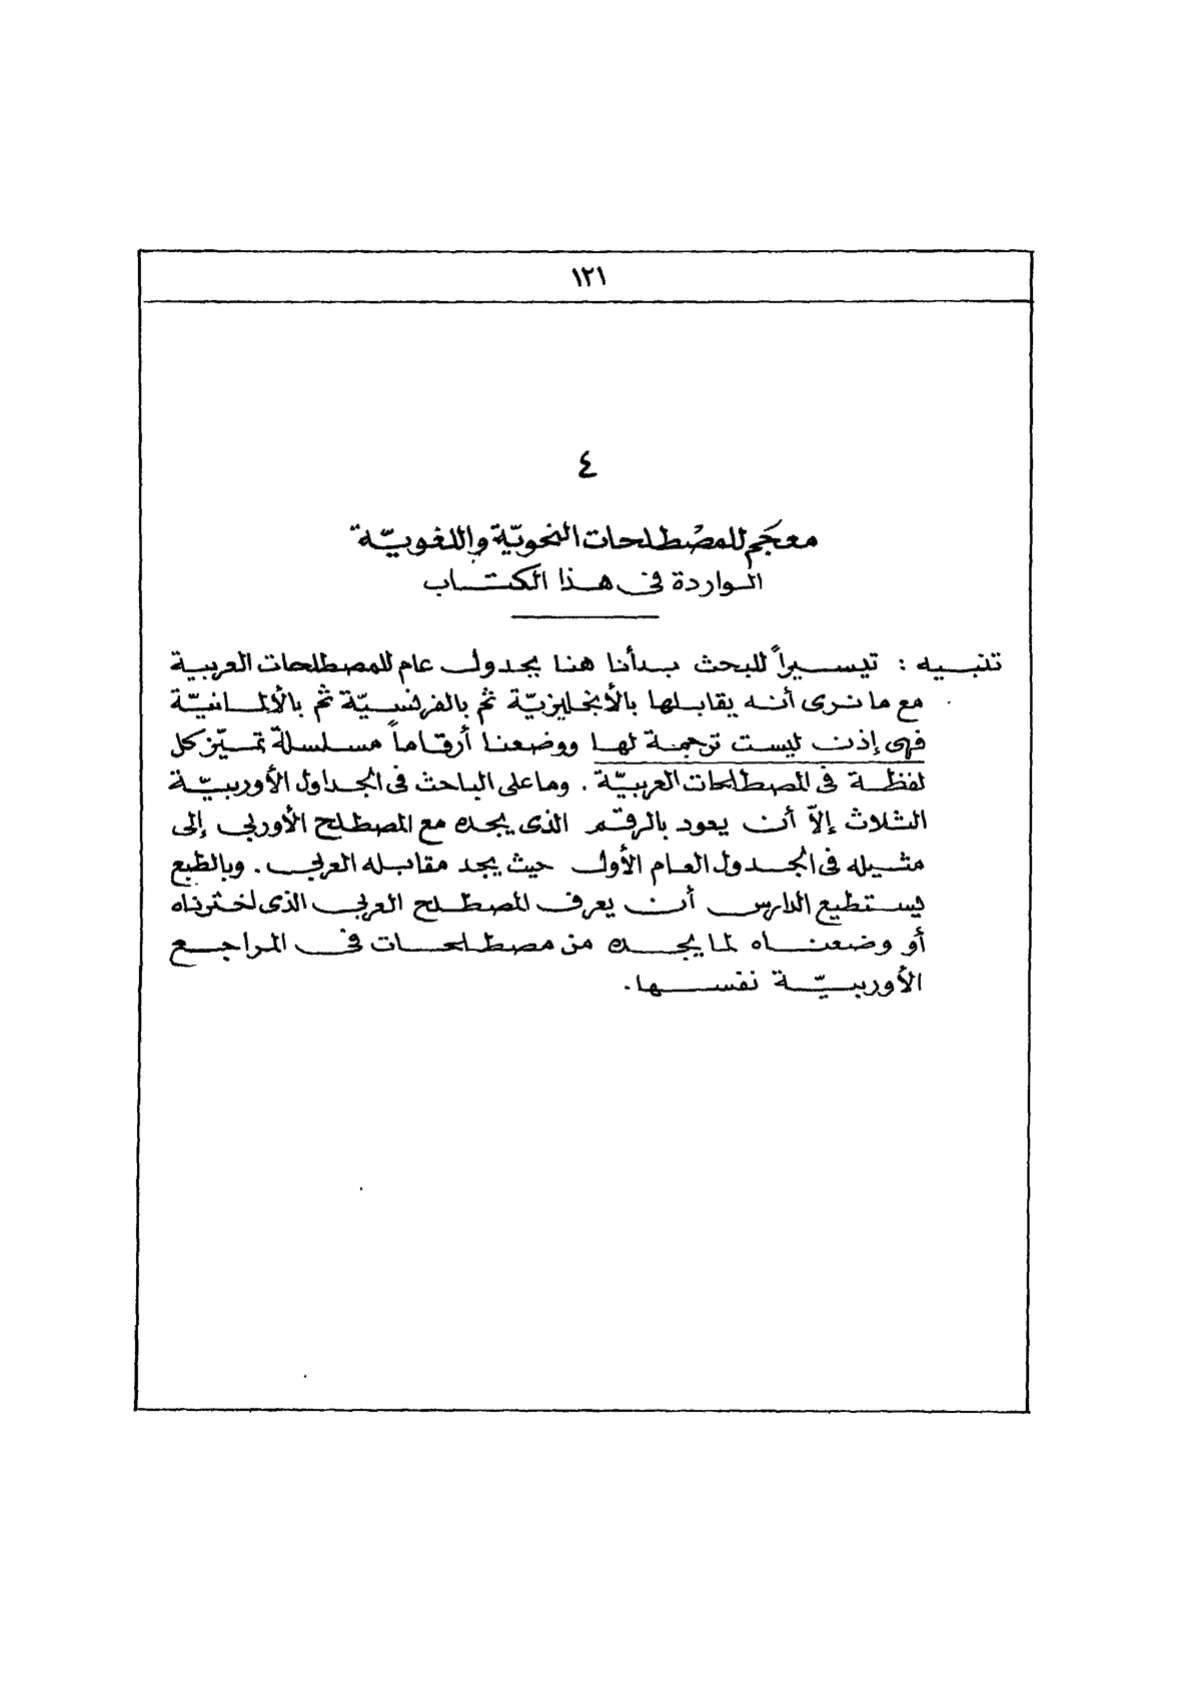 ١٢١
٤
معجَم للمصْطلحات النحويّة واللغويّة
الواردة فى هذا الكتاب
تنبيه : تيسيراً للبحث بدأنا هنا بجدول عام للمصطلحات العربية
مع ما نرى أنه يقابلها بالأنجليزيّة ثم بالفرنسيّة ثم بالألمانيّة
فهى إذن ليست ترجمة لها ووضعنا أرقاماً مسلسلة تميّز كل
لفظة فى المصطلحات العربيّة . وما على الباحث فى الجداول الأوربيّة
الثلاث إلاّ أن يعود بالرقم الذى يجده مع المصطلح الأوربى إلى
مثيله فى الجدول العام الأول حيث يجد مقابله العربى . وبالطبع
يستطيع الدارس أن يعرف المصطلح العربى الذى اخترناه
أو وضعناه لما يجده من مصطلحات فى المراجع
الأوربيّة نفسها .